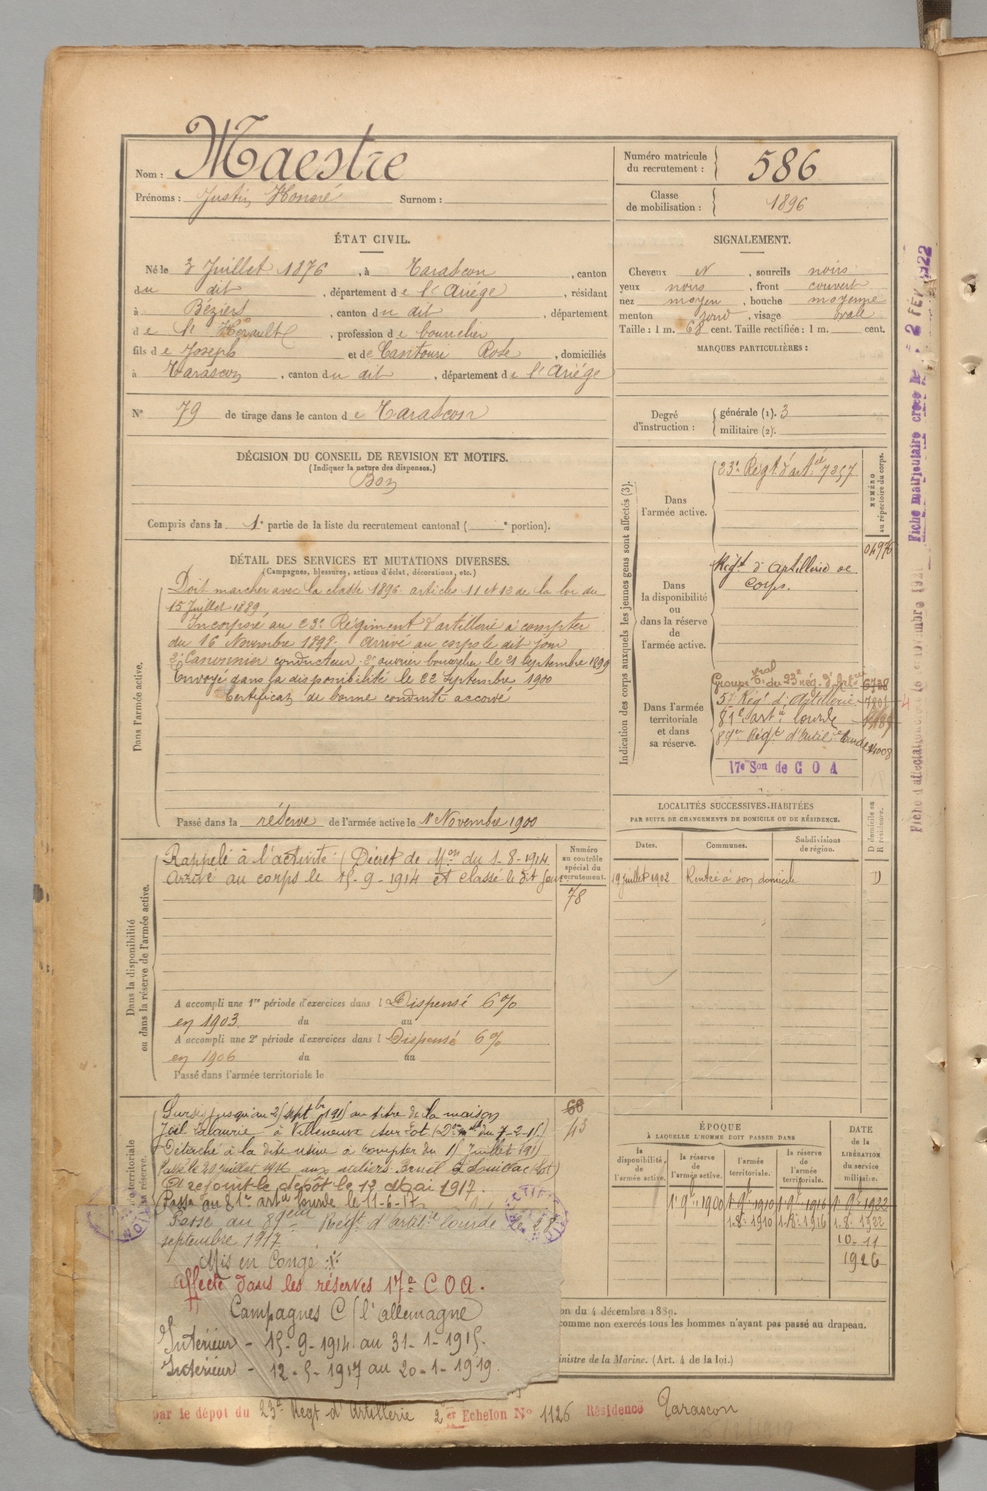 Nom : Maestre
Prénoms : Justin Honoré Surnom :
Numéro matricule du recrutement : 586
Classe de mobilisation : 1896
ÉTAT CIVIL.
Né le 3 Juillet 1876, à Tarascon, canton
du dit, département de l'Ariége, résidant
à Béziers, canton du dit, département
de l'Hérault, profession de boucher
fils de Joseph et de Cantoure Rose, domiciliés
à Tarascon, canton du dit, département de l'Ariége
N° 79 de tirage dans le canton de Tarascon
SIGNALEMENT.
Cheveux N, sourcils noirs
yeux noirs, front couvert
nez moyen, bouche moyenne
menton rond, visage ovale
Taille : 1 m. 68 cent. Taille rectifiée : 1 m. cent.
MARQUES PARTICULIÈRES :
Degré d'instruction : générale (1). 3
militaire (2).
DÉCISION DU CONSEIL DE REVISION ET MOTIFS.
(Indiquer la nature des dispenses.)
Bon
Compris dans la 1e partie de la liste du recrutement cantonal ( e portion).
DÉTAIL DES SERVICES ET MUTATIONS DIVERSES.
(Campagnes, blessures, actions d'éclat, décorations, etc.)
Dans l'armée active.
Doit marcher avec la classe 1896 articles 11 et 10 de la loi du
15 Juillet 1889
Incorporé au 23e Régiment d'artillerie à compter
du 16 Novembre 1898. Arrivé au corps le dit jour
2e Canonnier conducteur. 2e ouvrier boucher le 21 Septembre 1899
Envoyé dans la disponibilité le 22 Septembre 1900
Certificat de bonne conduite accordé
Passé dans la réserve de l'armée active le 1er Novembre 1900
Indication des corps auxquels les jeunes gens sont affectés (3).
NUMÉRO au répertoire du corps.
Dans l'armée active.
23e Régt d'artie 7257
Dans la disponibilité ou dans la réserve de l'armée active.
Régt d'artillerie de
Corps.
04976
Dans l'armée territoriale et dans sa réserve.
Groupe tral du 23e Rég. d'artie 6738
5e Rég. d'Artillerie
81e d'arte lourde
89me Régt d'artilie lourde 11008
17e Son de C O A
LOCALITÉS SUCCESSIVES HABITÉES
PAR SUITE DE CHANGEMENTS DE DOMICILE OU DE RÉSIDENCE.
Dates. Communes. Subdivisions de région. D domicile ou R résidence.
19 juillet 1902 Rentré à son domicile D
Dans la disponibilité ou dans la réserve de l'armée active.
Rappelé à l'activité (Décret de Mon du 1-8-1914
Arrivé au corps le 15-9-1914 et classé le dit jour
Numéro au contrôle spécial du recrutement.
78
A accompli une 1re période d'exercices dans l Dispensé 6%
en 1903 du au
A accompli une 2e période d'exercices dans l Dispensé 6%
en 1906 du au
Passé dans l'armée territoriale le
60
43
Sursis jusqu'au 2 septbre 1915 au titre de la maison
à Villeneuve sur Lot
Détaché à la dite usine à compter du 1er Juillet 1915
A rejoint le dépôt le 12 Mai 1917.
Passé au 81e artie lourde le 11-6-17
Passé au 89eme Régt d'artilie lourde le 27
septembre 1917
Mis en Congé
Affecté dans les réserves 17e C O A.
Campagnes C/ l'allemagne
Intérieur - 15-9-1914 au 31-1-1915.
Intérieur - 12-5-1917 au 20-1-1919.
ÉPOQUE
À LAQUELLE L'HOMME DOIT PASSER DANS
la disponibilité de l'armée active. la réserve de l'armée active. l'armée territoriale. la réserve de l'armée territoriale.
DATE de la LIBÉRATION du service militaire.
1er 9bre 1900 1er 9bre 1910 1er 9bre 1916 1er 9bre 1922
1-8-1910 1-8-1916 1-8-1922
10-11
1926
on du 4 décembre 1889.
comme non exercés tous les hommes n'ayant pas passé au drapeau.
inistre de la Marine. (Art. 4 de la loi.)
par le dépôt du 23e Régt d'Artillerie 2er Echelon N° 1126 Résidence Tarascon
Fiche matriculaire créée le 2 FEV 1922